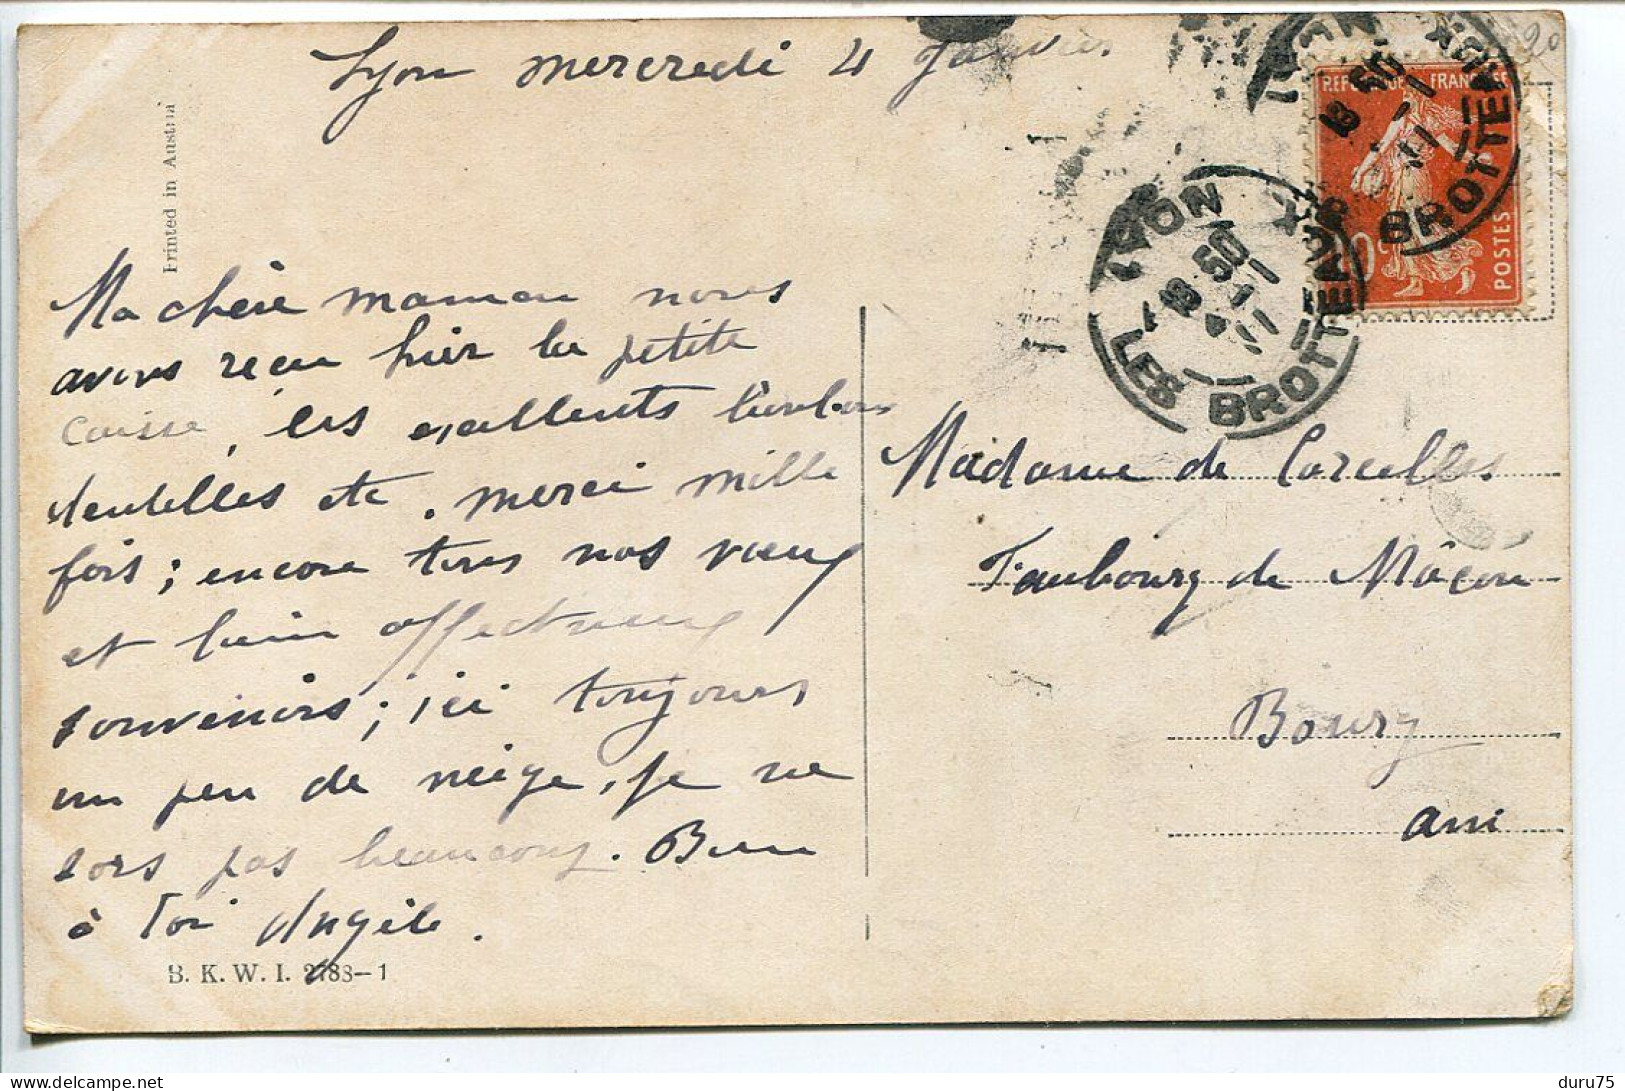 Lyon mercredi 4 Janvier
Printed in Austria
Ma chère maman nous
avons reçu hier la petite
caisse, les excellents bonbons
dentelles etc. merci mille
fois; encore tous nos voeux
et bien affectueux
souvenirs; ici toujours
un peu de neige, je ne
sors pas beaucoup. Bien
à toi Angèle.
B. K. W. I. 2788-1
LYON
LES BROTTEAUX
18 50
4 - 1
11
LYON
BROTTEAUX
18 50
11
REPUBLIQUE FRANÇAISE
10c
POSTES
20
Madame de Corcelles
Faubourg de Mâcon
Bourg
Ain
delcampe.net
duru75